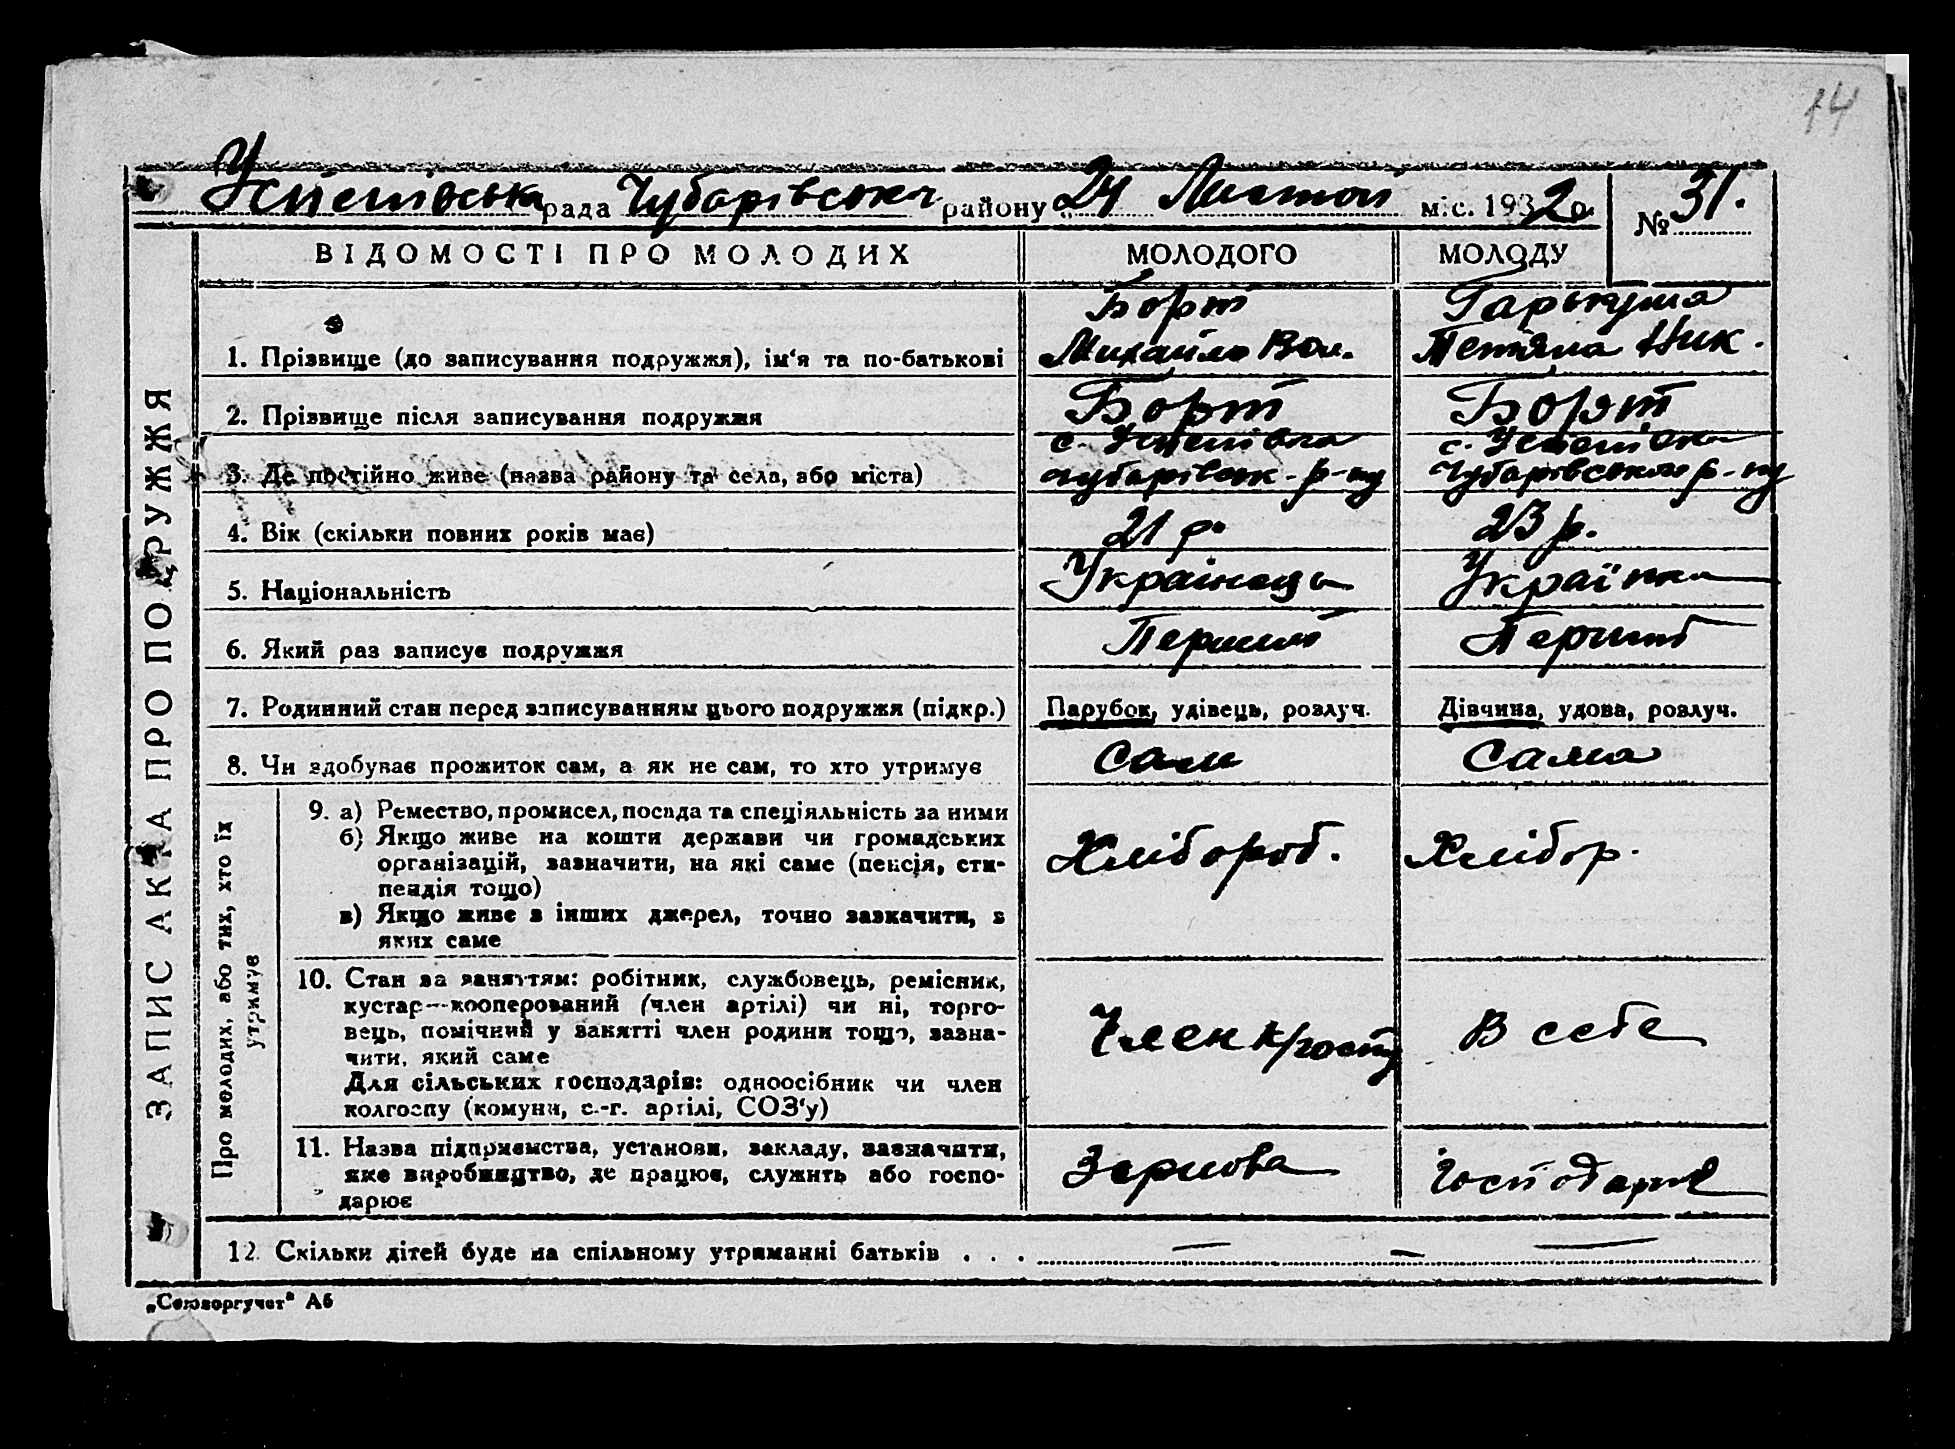 14
Успенівська рада Чубарівськ району „24 Листоп міс. 1932 р. № 31.
ЗАПИС АКТА ПРО ПОДРУЖЖЯ
ВІДОМОСТІ ПРО МОЛОДИХ МОЛОДОГО МОЛОДУ
Борт Гарькуша
1. Прізвище (до записування подружжя), ім'я та по-батькові Михайло Вол. Тетяна Ник.
2. Прізвище після записування подружжя Борт Борт
с. Успенівка с. Успенівка
3. Де постійно живе (назва району та села, або міста) Чубарівськ. р-ну Чубарівського р-ну
4. Вік (скільки повних років має) 21 р. 23 р.
5. Національність Українець Українка
6. Який раз записує подружжя Перший Перший
7. Родинний стан перед записуванням цього подружжя (підкр.) Парубок, удівець, розлуч. Дівчина, удова, розлуч.
8. Чи здобуває прожиток сам, а як не сам, то хто утримує Сам Сама
Про молодих, або тих, хто їх утримує
9. а) Ремество, промисел, посада та спеціяльність за ними
б) Якщо живе на кошти держави чи громадських
організацій, зазначити, на які саме (пенсія, сти-
пендія тощо)
в) Якщо живе з інших джерел, точно зазначити, з
яких саме
Хлібороб. Хлібор.
10. Стан за заняттям: робітник, службовець, ремісник,
кустар—кооперований (член артілі) чи ні, торго-
вець, помічний у занятті член родини тощо, зазна-
чити, який саме
Для сільських господарів: одноосібник чи член
колгоспу (комуни, с.-г. артілі, СОЗ'у)
Член к/госпу В себе
11. Назва підприємства, установи, закладу, зазначити,
яке виробництво, де працює, служить або госпо-
дарює
Зернова Господарює
12. Скільки дітей буде на спільному утриманні батьків . . . — — —
„Союзоргучет" А6